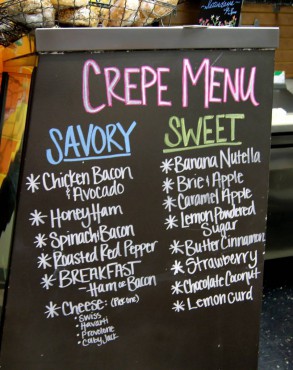 CREPE MENU
SAVORY
* Chicken Bacon
& Avocado
* Honey Ham
* Spinach Bacon
* Roasted Red Pepper
* BREAKFAST
- Ham or Bacon
* Cheese: (Pick one)
• Swiss
• Havarti
• Provolone
• Colby Jack
SWEET
* Banana Nutella
* Brie & Apple
* Caramel Apple
* Lemon Powdered
Sugar
* Butter Cinnamon
* Strawberry
* Chocolate Coconut
* Lemon Curd